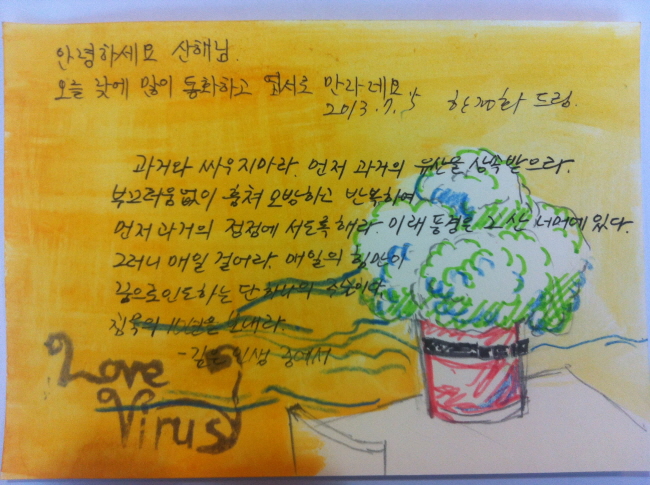 안녕하세요 산해님.
오늘 낮에 많이 통화하고 엽서로 만나네요
2013.7.5 한경화 드림.
과거와 싸우지마라. 먼저 과거의 유산을 상속받으라.
부끄러움없이 훔쳐 모방하고 반복하여
먼저 과거의 접점에 서도록해라 미래풍경은 그 산 너머에 있다.
그러니 매일 걸어라. 매일의 힘만이
꿈으로인도하는 단 하나의 수단이다.
침묵의 10년을 보내라.
- 인생 중에서
Love
Virus